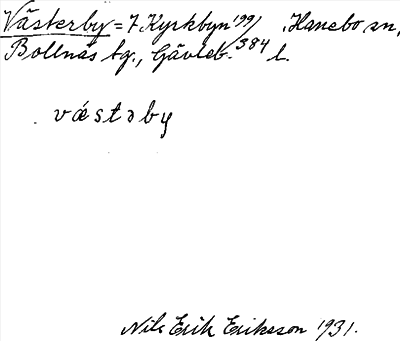 Västerby = 7 Kyrkbyn 199/384 Hanebo sn,
Bollnäs tg., Gävleb. l.
væstəby
Nils Erik Eriksson 1931.